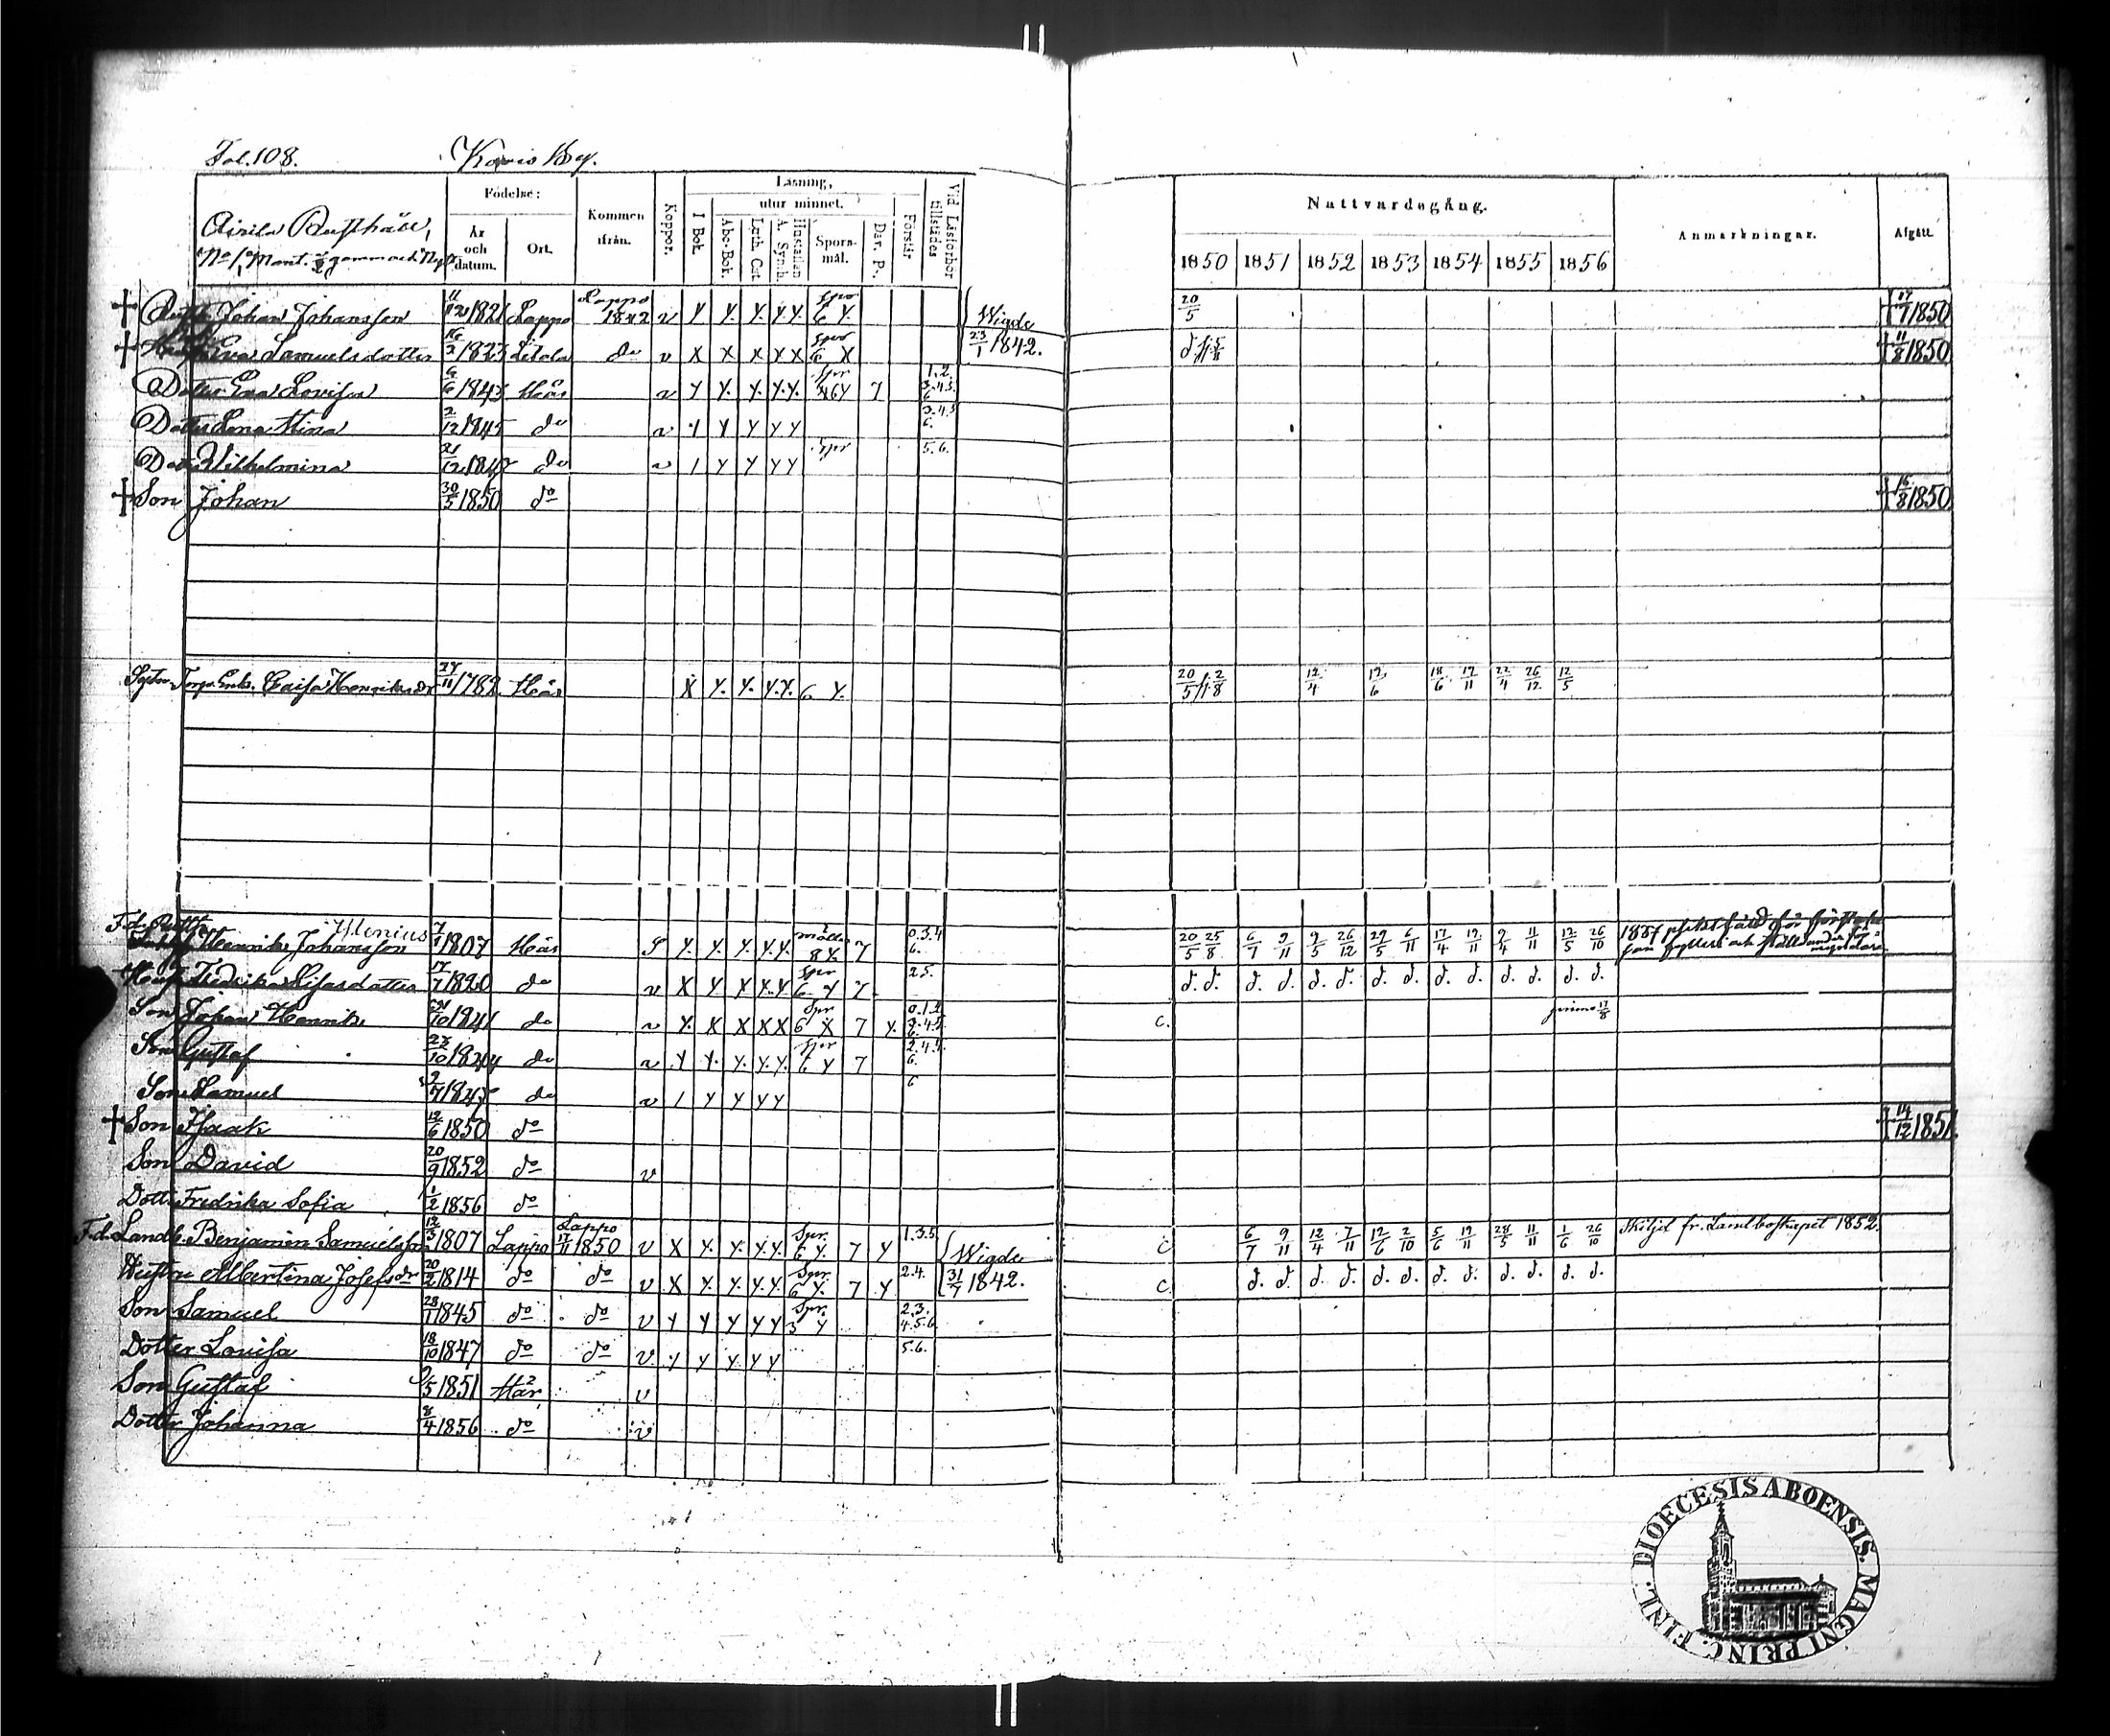 Fol. 108. Kovis By.
Airila Rusthåll,
No 1, Mant.
Födelse:
År och datum.
Ort.
Kommen ifrån.
Koppor.
Läsning,
I Bok.
utur minnet.
Abc-Bok.
Luth. Cat.
Hustaflan A. Symb.
Spörsmål.
Dav. Ps.
Förstår
Vid Läsförhör tillstädes
Nattvardsgång.
1850 1851 1852 1853 1854 1855 1856
Anmärkningar.
Afgått.
† Johan Johansson 1821 Lappo Lappo 1842 v y y. y. y.y. Spr 6 y. Wigde 23/1 1842. 20/5 † 17/7 1850
† Eva Samuelsdotter 16/2 1823 Letala do v x x x x x Spr 6 x † 11/8 1850
Dotter Eva Lovisa 6/6 1843 Här v y y. y. y.y. Spr 7 1.2. 3.4.5. 6
Dotter Lena Stina 2/12 1845 do v y y y y 3.4.5 6.
Dotter Wilhelmina 21/12 1848 do v 1 y y y y Spr 5.6.
† Son Johan 30/5 1850 do † 16/8 1850
Torp. Enk. Caisa Henriksdr 27/11 1782 Här X y. y. y.y. 6 y. 20/5 2/8 12/4 12/6 18/6 12/11 22/4 26/12 12/5
F.d. Rusth.
Henrik Johansson Hlenius 7/1 1807 Här S y. y. y. y.y. 8 y. 7 0.3.4 6. 20/5 25/8 6/7 9/11 9/5 26/12 29/5 6/11 17/4 12/11 9/4 11/11 12/5 26/10
Hust. Fredrika Lisasdotter 17/7 1820 do v X y X y.y Spr 6 y 7 2.5. d. d. d. d. d. d. d. d. d. d. d. d. d. d.
Son Johan Henrik 1841 do v y. X X X X Spr 6 X 7 y. 0.1.2 3.4.5. 6 c. primo 17/8
Son Gustaf 23/10 1844 do v y y. y. y.y. Spr 6 y 7 2.4.5. 6.
Son Samuel 1847 do v 1 y y y y 6
† Son Isaak 12/6 1850 do † 14/12 1851.
Son David 20/9 1852 do v
Dotter Fredrika Sofia 1/2 1856 do
F.d. Landb. Benjamin Samuelsson 12/3 1807 Lappo Lappo 17/11 1850 v X y. y. y.y. Spr. 6 y. 7 y 1.3.5 Wigde 31/7 1842. c 6/7 9/11 12/4 7/11 12/6 2/10 5/6 12/11 28/5 11/11 1/6 26/10 Skiljd fr. Landboskapet 1852.
Hustru Albertina Josefsdr 20/2 1814 do do v X y. y. y.y. Spr. 6 y. 7 y 2.4. c. d. d. d. d. d. d. d. d. d. d. d. d.
Son Samuel 28/1 1845 do do v y y y y y Spr. 3 y 2.3. 4.5.6.
Dotter Lovisa 18/10 1847 do do v. y y y. y y 5.6.
Son Gustaf 1851 Här v
Dotter Johanna 8/4 1856 do v
DIOECESIS ABOENSIS. MAGNI PRINC. FINL.